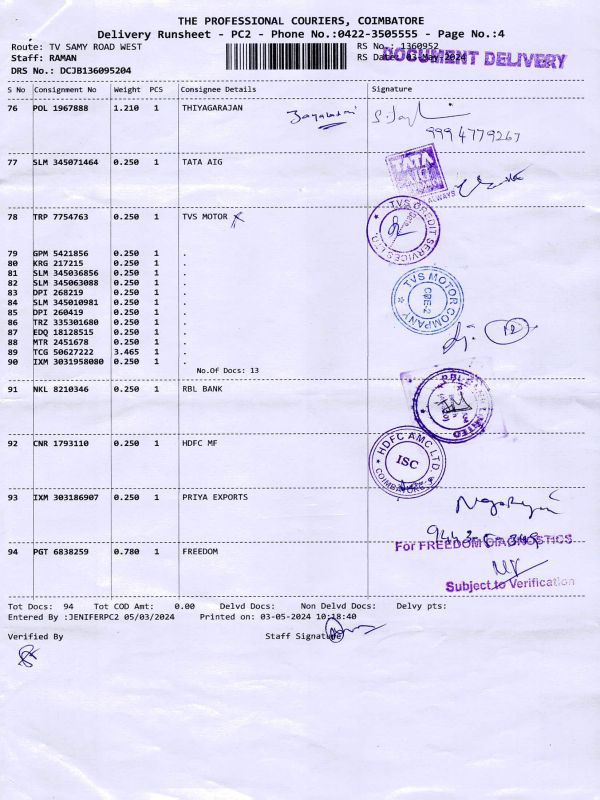 THE PROFESSIONAL COURIERS, COIMBATORE
Delivery Runsheet - PC2 - Phone No.:0422-3505555 - Page No.:4
Route: TV SAMY ROAD WEST RS No.: 1360952
Staff: RAMAN RS Date: 03-May-2024
DOCUMENT DELIVERY
DRS No.: DCJB136095204
S No Consignment No Weight PCS Consignee Details Signature
76 POL 1967888 1.210 1 THIYAGARAJAN
9994779267
77 SLM 345071464 0.250 1 TATA AIG
TATA
ALWAYS
78 TRP 7754763 0.250 1 TVS MOTOR
TVS CREDIT SERVICES LTD.
79 GPM 5421856 0.250 1 .
80 KRG 217215 0.250 1 .
81 SLM 345036856 0.250 1 .
82 SLM 345063088 0.250 1 .
83 DPI 268219 0.250 1 .
84 SLM 345010981 0.250 1 .
85 DPI 260419 0.250 1 .
86 TRZ 335301680 0.250 1 .
87 EDQ 18128515 0.250 1 .
88 MTR 2451678 0.250 1 .
89 TCG 50627222 3.465 1 .
90 IXM 3031958080 0.250 1 .
TVS MOTOR COMPANY
CPE-2
No.Of Docs: 13
91 NKL 8210346 0.250 1 RBL BANK
RBL LIMITED
92 CNR 1793110 0.250 1 HDFC MF
HDFC AMC LTD.
ISC
COIMBATORE
93 IXM 303186907 0.250 1 PRIYA EXPORTS
94 PGT 6838259 0.780 1 FREEDOM
For FREEDOM DIAGNOSTICS
Subject to Verification
Tot Docs: 94 Tot COD Amt: 0.00 Delvd Docs: Non Delvd Docs: Delvy pts:
Entered By :JENIFERPC2 05/03/2024 Printed on: 03-05-2024 10:18:40
Verified By Staff Signature